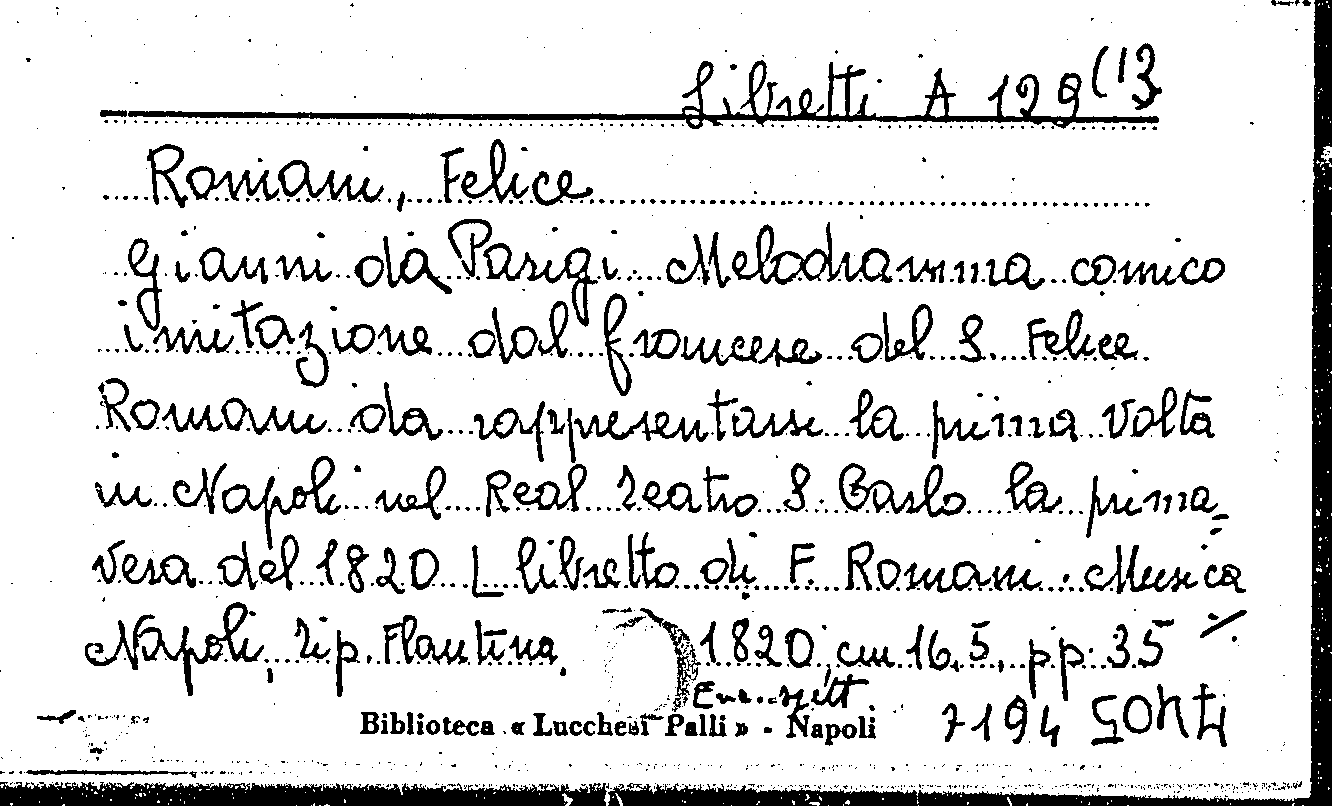 Libretti A 129 (13
Romani, Felice
Gianni da Parigi. Melodramma comico
imitazione dal francese del S. Felice
Romani da rappresentarsi la prima volta
in Napoli nel Real Teatro S. Carlo la prima=
vera del 1820 L libretto di F. Romani. Musica
Napoli, Tip. Flautina, 1820, cm 16,5, pp. 35 %.
Biblioteca « Lucchesi Palli » - Napoli 7194